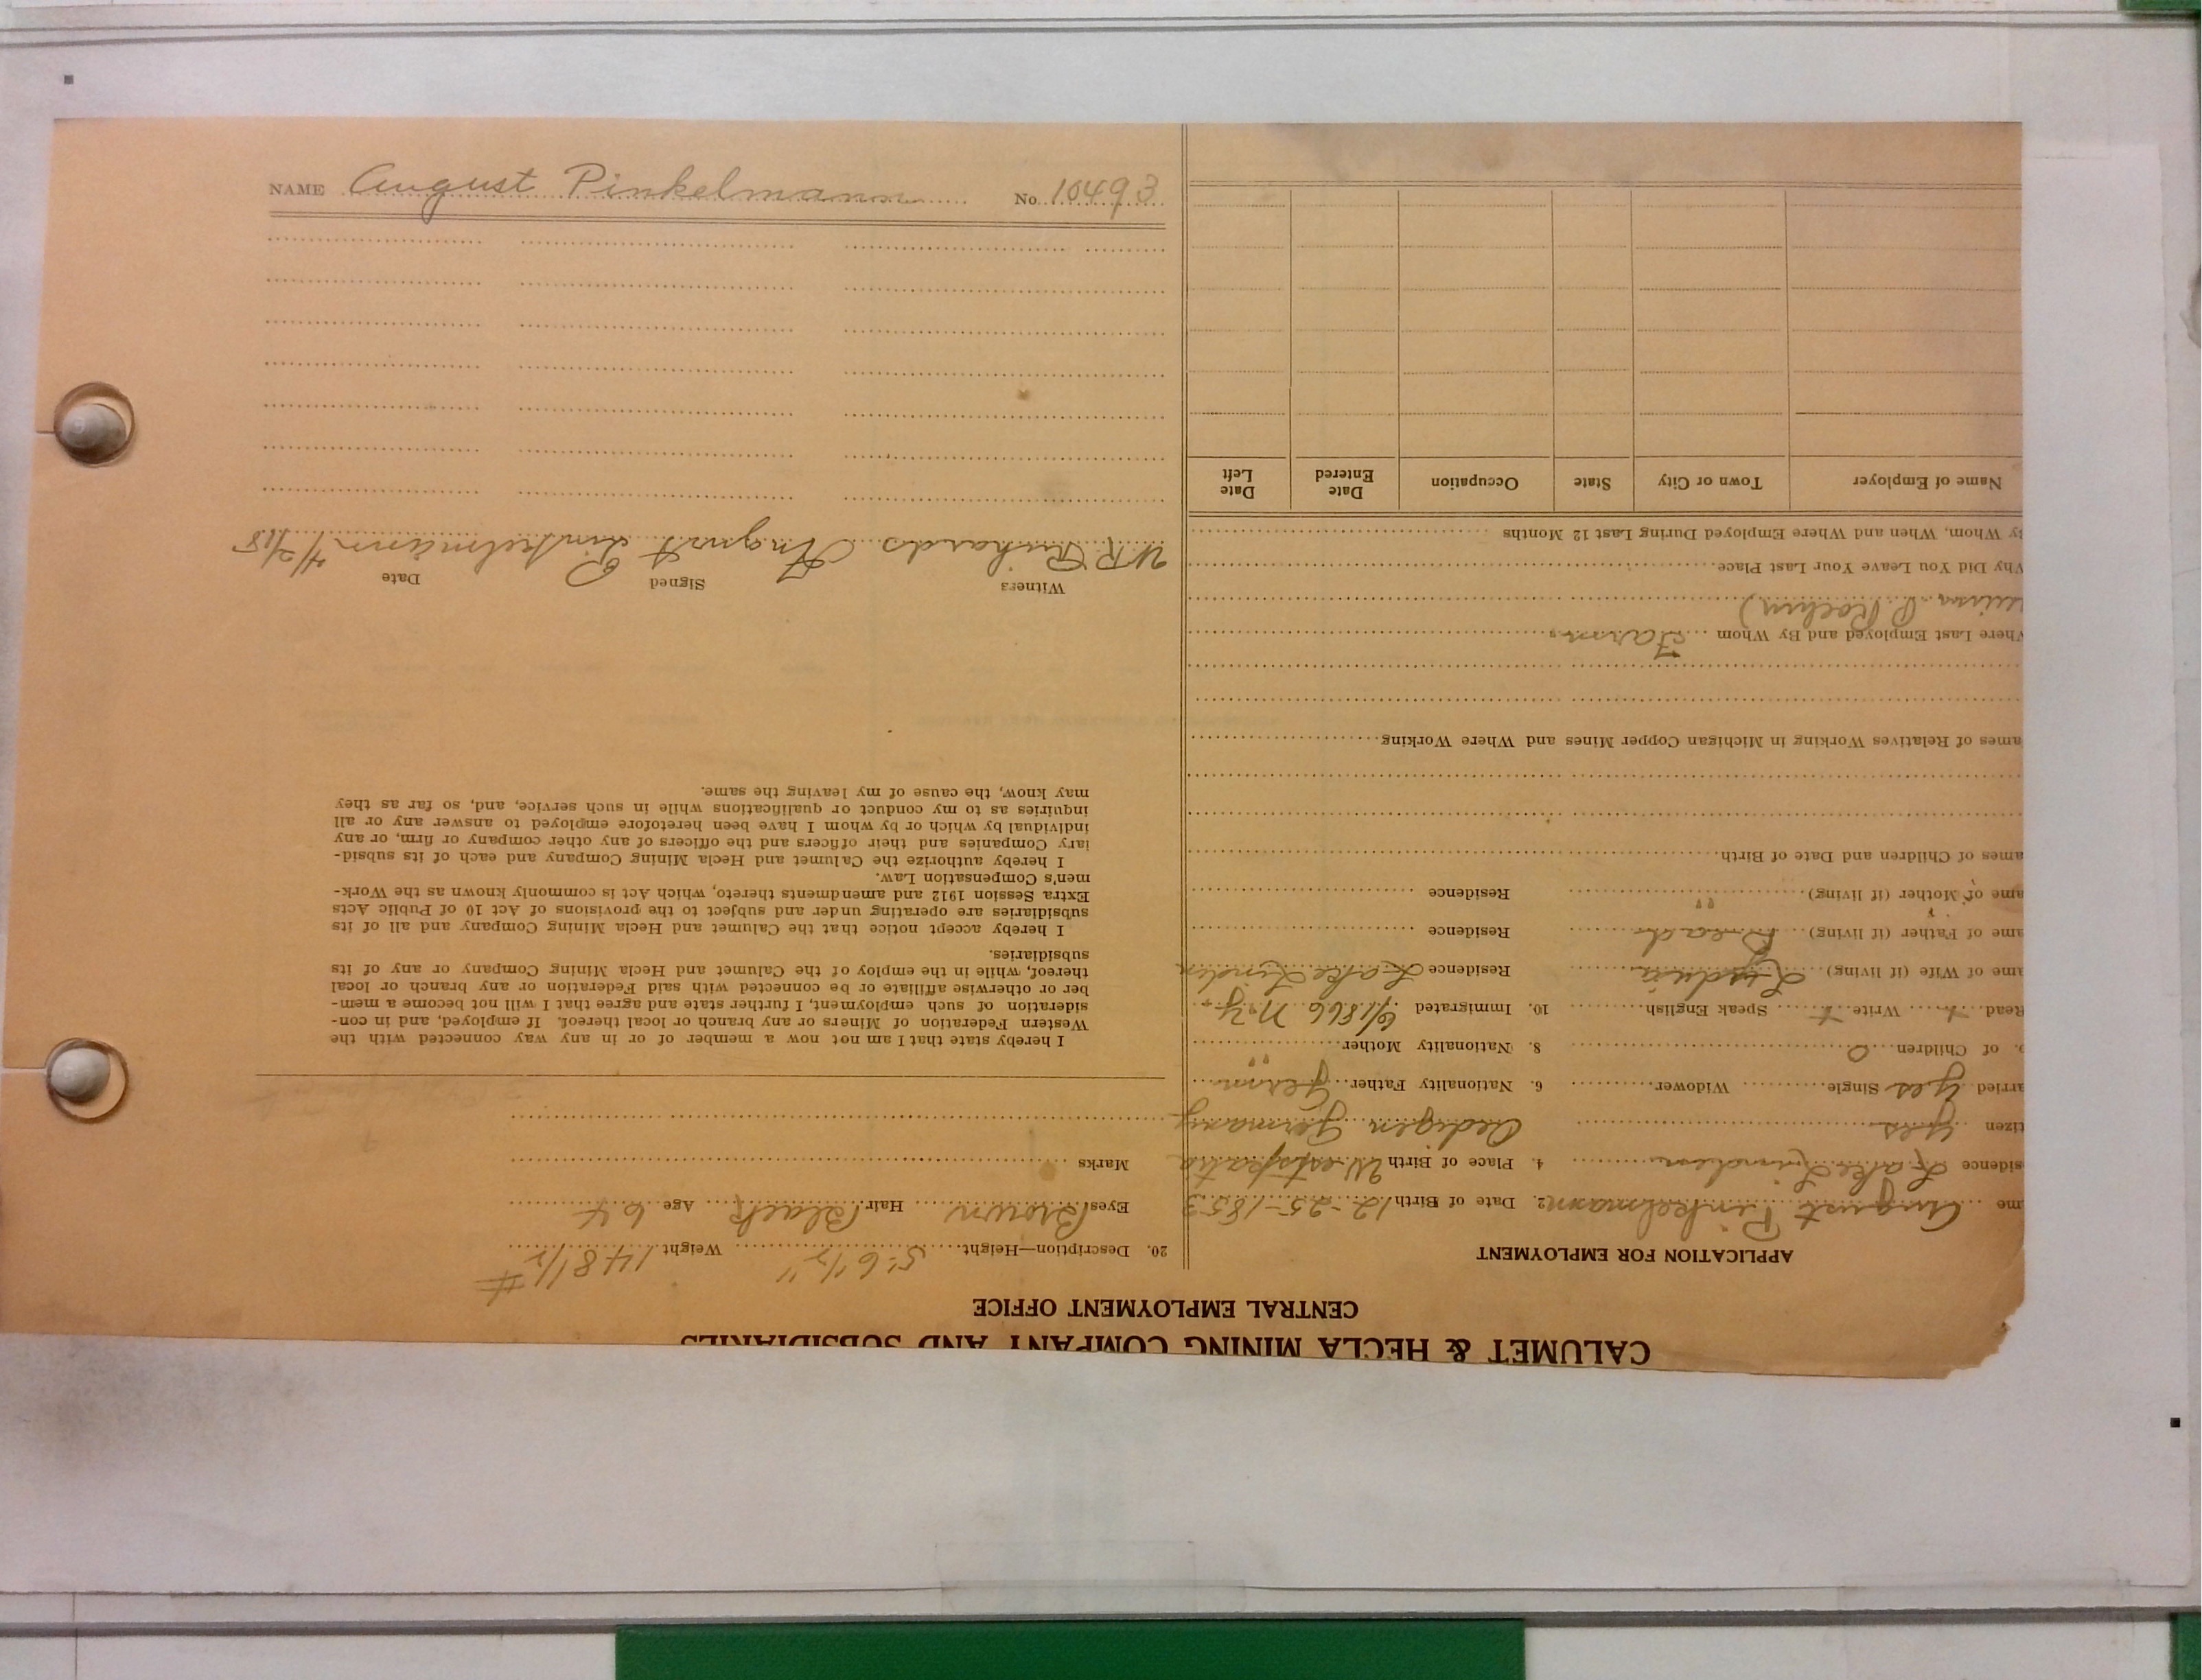 NAME August Pinkelmann No. 10493
CALUMET & HECLA MINING COMPANY AND SUBSIDIARIES
CENTRAL EMPLOYMENT OFFICE
APPLICATION FOR EMPLOYMENT
me August Pinkelmann 2. Date of Birth 12-25-1853
sidence Lake Linden 4. Place of Birth Westfalia
tizen yes Germany
arried yes Single Widower 6. Nationality Father Germ
o. of Children 0 8. Nationality Mother " "
Read Write Speak English 10. Immigrated 6/1866 N.Y.
ame of Wife (if living) Lydia Residence Lake Linden
ame of Father (if living) Dead Residence
ame of Mother (if living) " " Residence
ames of Children and Date of Birth
ames of Relatives Working in Michigan Copper Mines and Where Working
here Last Employed and By Whom Farm
Why Did You Leave Your Last Place
By Whom, When and Where Employed During Last 12 Months
Name of Employer Town or City State Occupation Date Entered Date Left
20. Description—Height 5'6 1/2" Weight 148 1/2 #
Eyes Brown Hair Black Age 64
Marks
I hereby state that I am not now a member of or in any way connected with the
Western Federation of Miners or any branch or local thereof. If employed, and in con-
sideration of such employment, I further state and agree that I will not become a mem-
ber or otherwise affiliate or be connected with said Federation or any branch or local
thereof, while in the employ of the Calumet and Hecla Mining Company or any of its
subsidiaries.
I hereby accept notice that the Calumet and Hecla Mining Company and all of its
subsidiaries are operating under and subject to the provisions of Act 10 of Public Acts
Extra Session 1912 and amendments thereto, which Act is commonly known as the Work-
men's Compensation Law.
I hereby authorize the Calumet and Hecla Mining Company and each of its subsid-
iary Companies and their officers and the officers of any other company or firm, or any
individual by which or by whom I have been heretofore employed to answer any or all
inquiries as to my conduct or qualifications while in such service, and, so far as they
may know, the cause of my leaving the same.
Witness Signed Date
W.R. Richards August Pinkelmann 4/2/18